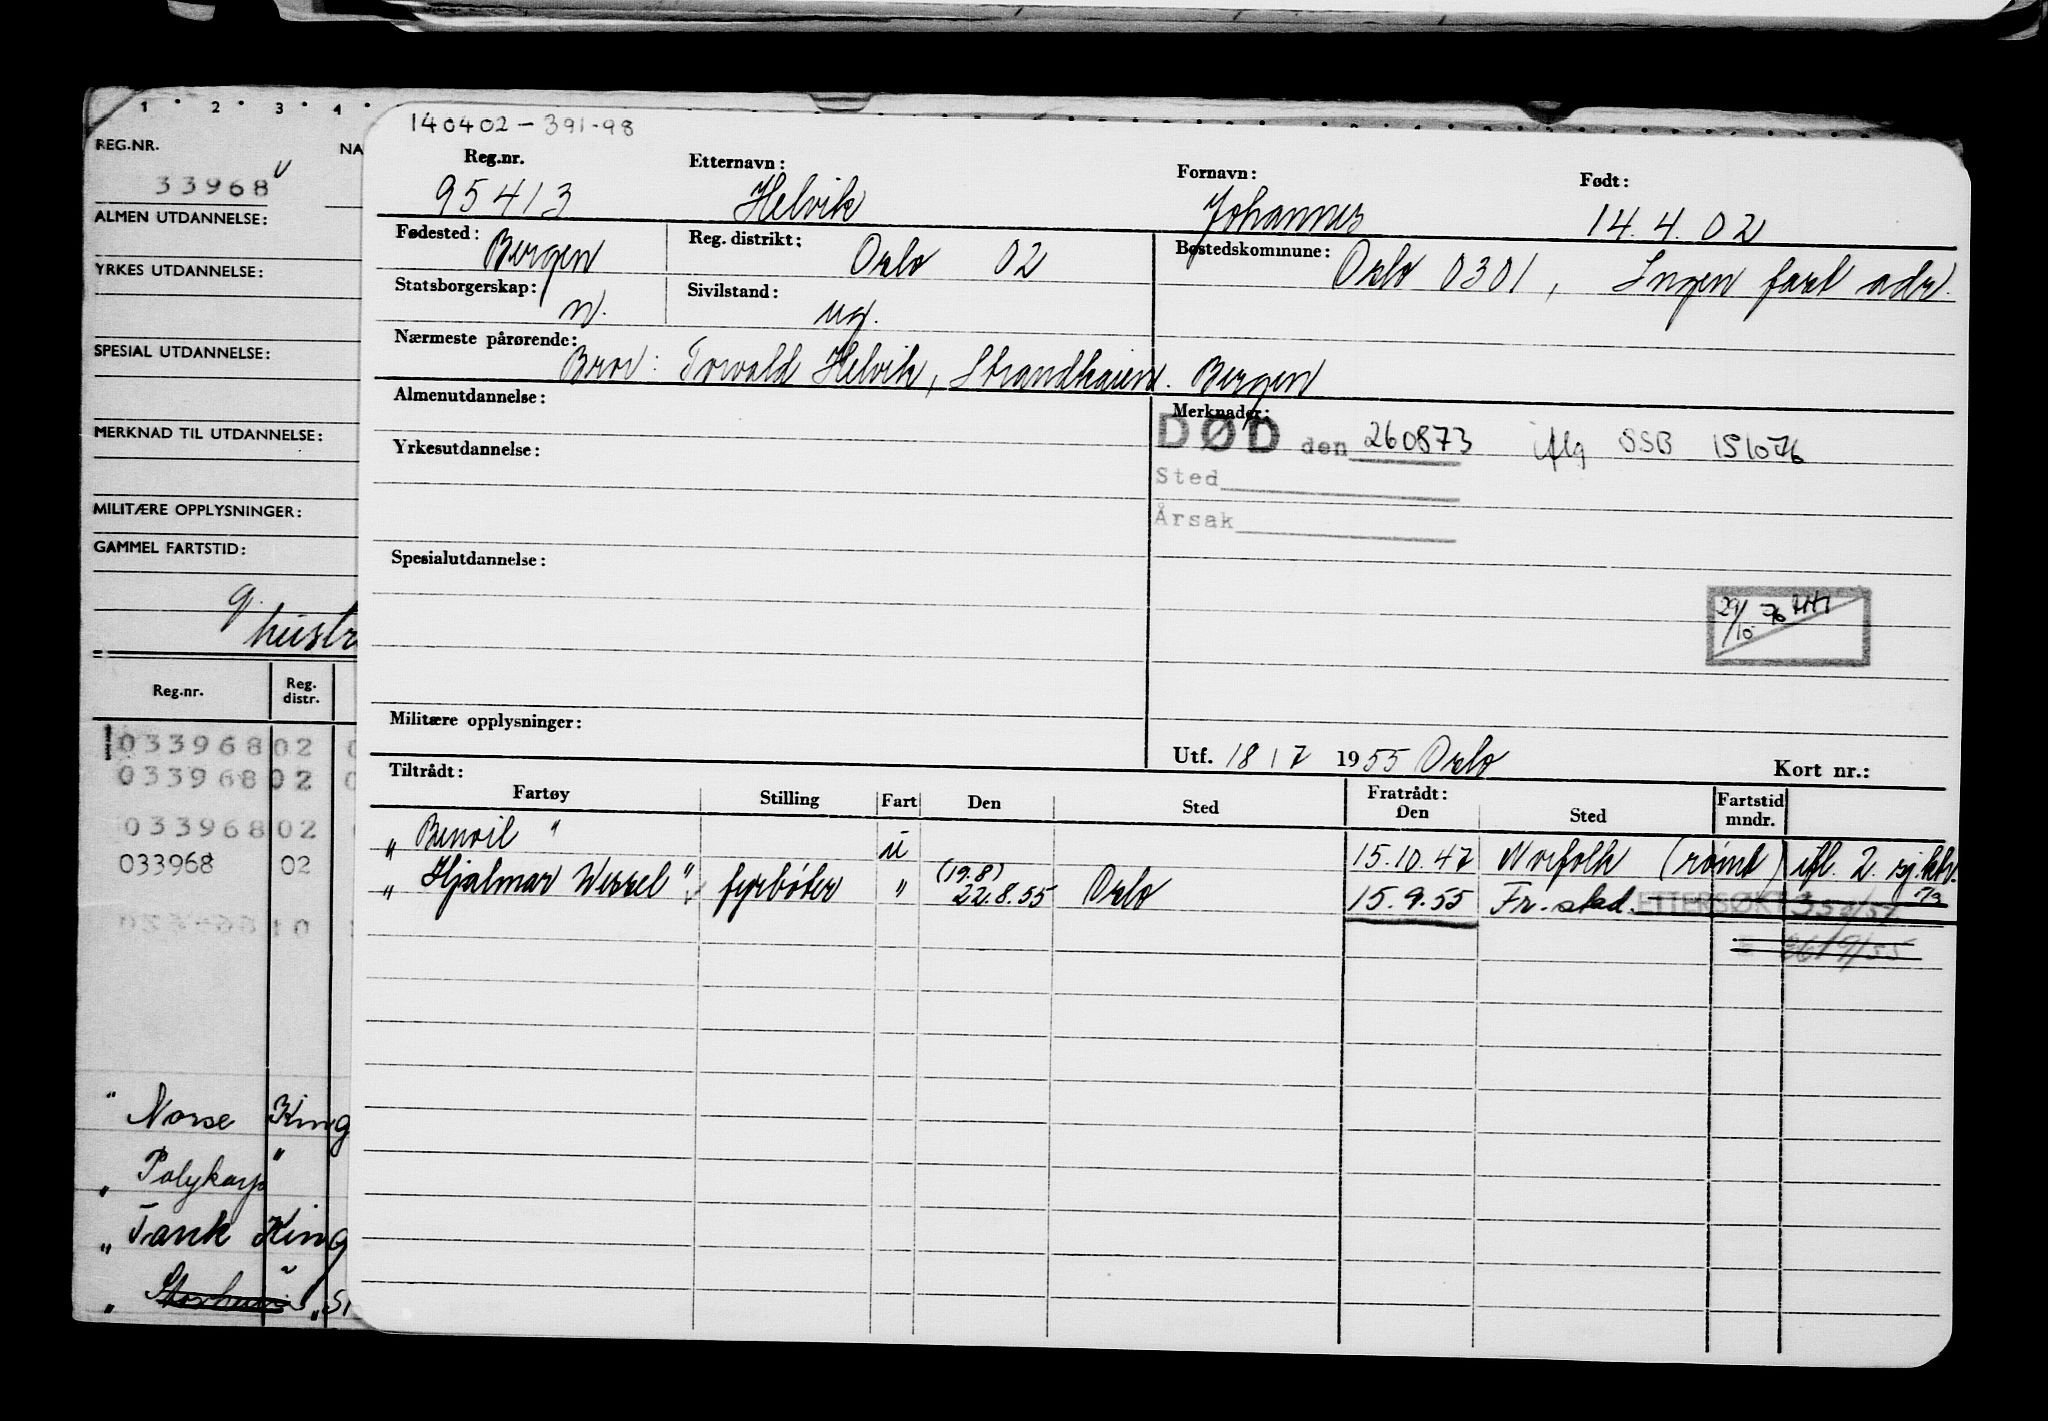 1 2 3 4
REG.NR. NA
33968
ALMEN UTDANNELSE:
YRKES UTDANNELSE:
SPESIAL UTDANNELSE:
MERKNAD TIL UTDANNELSE:
MILITÆRE OPPLYSNINGER:
GAMMEL FARTSTID:
g.
hustr
Reg.nr. Reg. distr.
033968 02
033968 02
033968 02
033968 02
" Norse King
" Polykarp "
" Tank King
"
140402-391-98
Reg.nr. Etternavn: Fornavn: Født:
95413 Helvik Johannes 14.4.02
Fødested: Bergen Reg. distrikt: Oslo 02 Bostedskommune: Oslo 0301, Ingen fast adr.
Statsborgerskap: n. Sivilstand: ug.
Nærmeste pårørende: Bror: Torvald Helvik, Strandkaien. Bergen
Almenutdannelse: Merknader:
DØD den 260873 iflg SSB 151076
Yrkesutdannelse:
Sted
Årsak
Spesialutdannelse:
29/10 76
Militære opplysninger:
Utf. 18/7 1955 Oslo Kort nr.:
Tiltrådt: Fratrådt:
Fartøy Stilling Fart Den Sted Den Sted Fartstid mndr.
" Benvil " u 15.10.47 Norfolk (rømt) ifl. 2. sj.ktr.
" Hjalmar Wessel" fyrbøter " (19.8) 22.8.55 Oslo 15.9.55 Fr.stad. ETTERSØKT